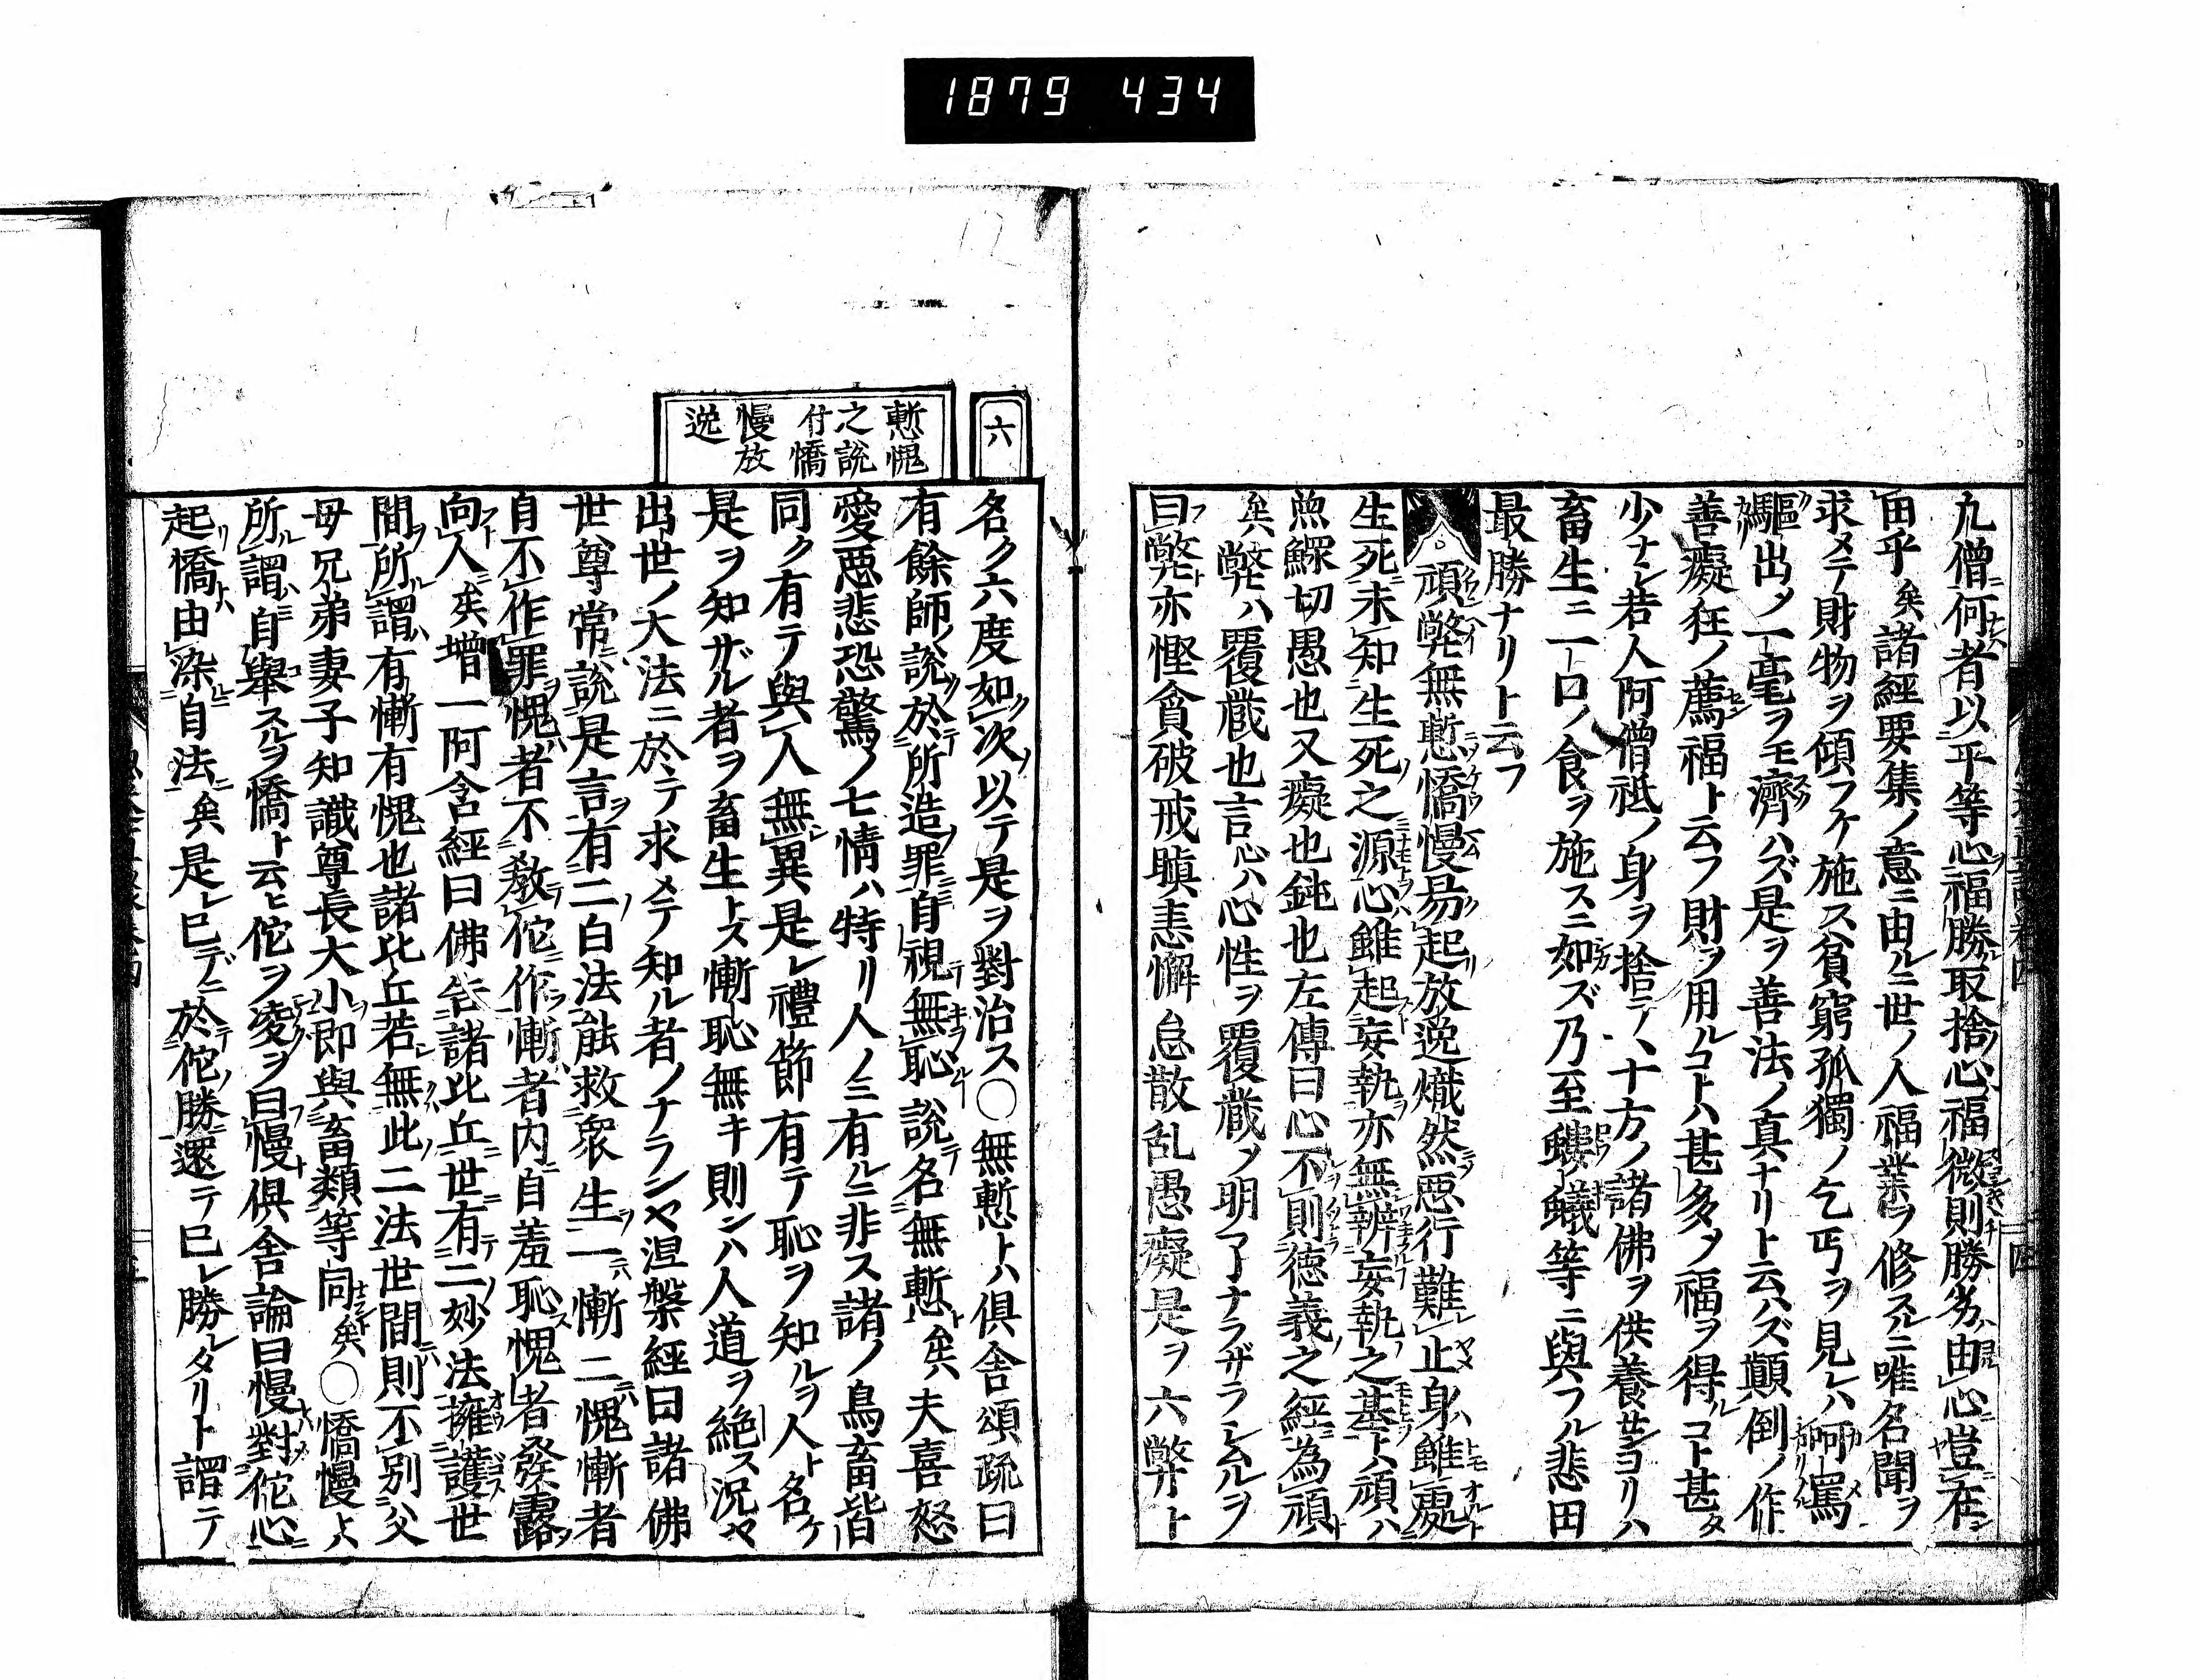 1879 434
九僧何者以平等心福勝取捨心福微則勝劣由心豈在
田乎矣諸經要集ノ意ニ由ルニ世ノ人福業ヲ修スルニ唯名聞ヲ
求メテ財物ヲ傾フケ施ス貧窮孤獨ノ乞丐ヲ見レハ呵罵
驅出ノ一毫ヲモ濟ハズ是ヲ善法ノ真ナリト云ハズ顛倒ノ作
善癡狂ノ薦福ト云フ財ヲ用ルコトハ甚多ノ福ヲ得ルコト甚タ
少ナシ若人阿僧祗ノ身ヲ捨テ丶十方ノ諸佛ヲ供養センヨリハ
畜生ニ一口ノ食ヲ施スニ如ズ乃至螻蟻等ニ與フル悲田
最勝ナリト云フ
頑弊無慙憍慢易起放逸熾然悪行難止身雖處
生死未知生死之源心雖起妄執亦無辨妄執之基ト頑ハ
魚鰥切愚也又癡也鈍也左傳曰心不則徳義之經為頑
矣弊ハ覆蔵也言心ハ心性ヲ覆蔵ノ明了ナラザラシムルヲ
曰弊亦慳貪破戒瞋恚懈怠散乱愚癡是ヲ六弊ト
六
慙愧
之説
付憍
慢放
逸
名ク六度如次以テ是ヲ對治ス○無慙トハ俱舎頌疏曰
有餘師説於所造罪自視無恥説名無慙矣夫喜怒
愛惡悲恐驚ノ七情ハ特リ人ノミ有ルニ非ス諸ノ鳥畜皆
同ク有テ與人無異是レ禮節有テ恥ヲ知ルヲ人ト名ケ
是ヲ知ザル者ヲ畜生トス慚恥無キ則シハ人道ヲ絶ス況ヤ
出世ノ大法ニ於テ求メテ知ル者ノナラシヤ涅槃經曰諸佛
世尊常説是言有二白法能救衆生一慚二愧慚者
自不作罪愧者不教佗作慚者内自羞恥愧者發露
向人矣增一阿含經曰佛告諸比丘世有二妙法擁護世
間所謂有慚有愧也諸比丘若無此二法世間則不別父
母兄弟妻子知識尊長大小即與畜類等同矣○憍慢ト
所謂自舉スルヲ憍ト云ヒ佗ヲ凌ヲ曰慢俱舎論曰慢對佗心
起憍由染自法矣是レ已デニ於佗勝還テ已レ勝レタリト謂テ